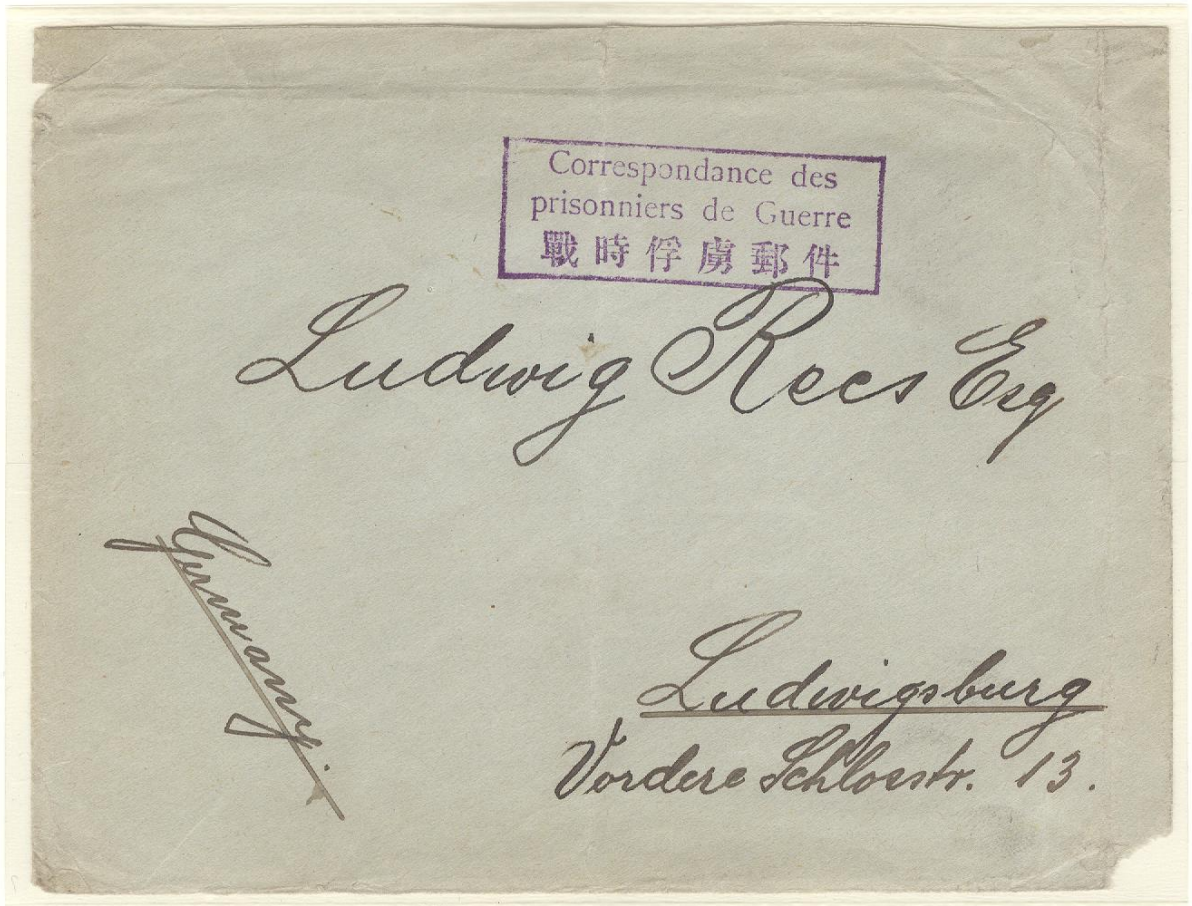 Correspondance des
prisonniers de Guerre
戰時俘虜郵件
Ludwig Rees Esq
Germany.
Ludwigsburg
Vordere Schlosstr. 13.